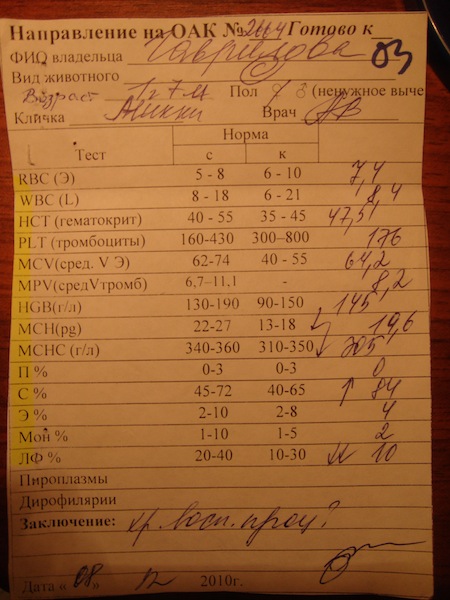 Направление на ОАК № 2114 Готово к
ФИО владельца Гаврилова 03
Вид животного
Возраст 1г 7м Пол ♀ ♂ (ненужное выче
Кличка Микки Врач
Норма
Тест с к
RBC (Э) 5 - 8 6 - 10 7,4
WBC (L) 8 - 18 6 - 21 8,4
HCT (гематокрит) 40 - 55 35 - 45 47,5
PLT (тромбоциты) 160-430 300–800 176
MCV(сред. V Э) 62-74 40 - 55 64,2
MPV(средVтромб) 6,7–11,1 - 8,2
HGB(г/л) 130-190 90-150 145
MCH(pg) 22-27 13-18 ↓ 19,6
MCHC (г/л) 340-360 310-350 ↓ 305
П % 0-3 0-3 0
С % 45-72 40-65 ↑ 84
Э % 2-10 2-8 4
Мон % 1-10 1-5 2
ЛФ % 20-40 10-30 10
Пироплазмы
Дирофилярии
Заключение: хр. восп. проц?
Дата « 08 » 12 2010г.